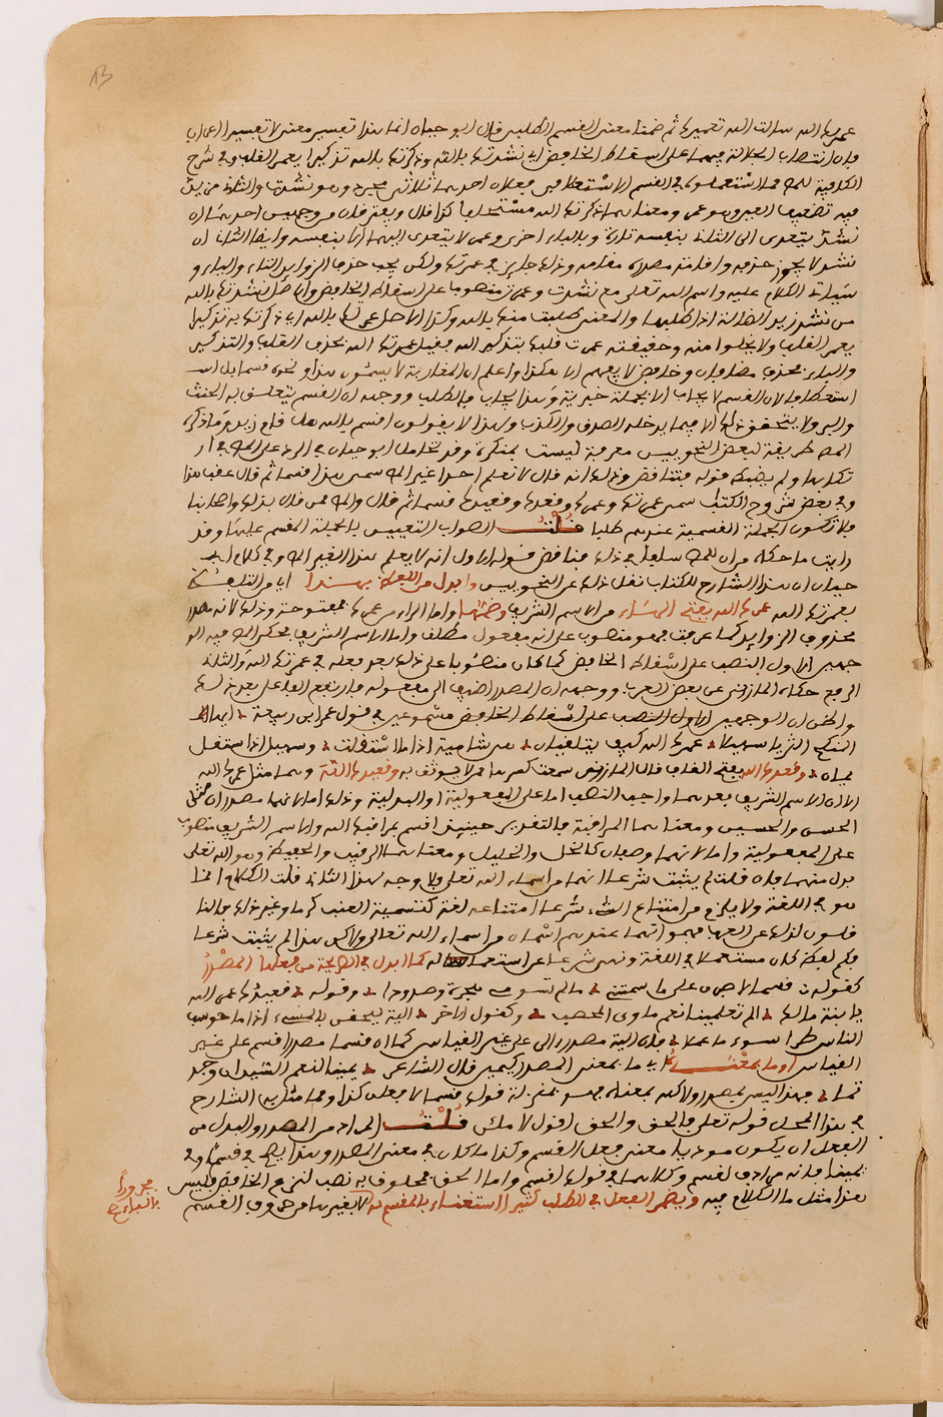 عمرتك الله سالت الله تعميرك ثم ضمنا معنى القسم الطلبي قال ابو حيان انما هذا تفسير معنى لا تفسير اعراب
فان انتصاب الجلالة فيهما على اسقاط الخافض اي نشدتك بالله وذكرتك بالله تذكيرا يعمر القلب وفي شرح
الكافية للمص مما استعملوه في القسم الاستعطافي فعلان احدهما ثلاثي مجرد وهو نشدت والثاني مزيد
فيه تضعيف العين وهو عمر ومعناهما ذكرتك الله مستحلفا كذا قال ويفترقان من وجهين احدهما ان
نشد يتعدى الى الثاني بنفسه تارة وبالباء اخرى وعمر لا يتعدى اليهما الا بنفسه وايضا الثاني ان
نشد لا يجوز حذفه واقامة مصدره مقامه وذلك جايز في عمرتك ولكن يجب حذف الزوايد التاء والياء و
سياق الكلام عليه واسم الله تعالى مع نشدت وعمرت منصوبا على اسقاط الخافض واصل نشدتك بالله
من نشد زيد الضالة اذا طلبها والمعنى طلبت منك بالله وكذا الاصل عمرتك بالله اي ذكرتك به تذكيرا
يعمر القلب ولا يخلوا منه وحقيقته عمرت قلبك بتذكير الله فقيل عمرتك الله بحذف القلب والتذكير
والباء فحذف مضافان وخافض لا يفهم الا هكذا واعلم ان المغاربة لا يسمون هذا ونحوه قسما بل
استعطافا لان القسم لا يجاب الا بجملة خبرية وهذا يجاب بالطلب ووجهه ان القسم يتعلق به الحنث
والبر ولا يتحقق ذلك الا فيما يدخله الصدق والكذب ولهذا لا يقولون اقسم بالله هل قام زيد وما ذكره
المص طريقة لبعض النحويين معروفة ليست بمنكرة وقد تحامل ابو حيان في الرد على المص في
ولم يضبط قوله فتناقض وذلك انه قال لا نعلم احدا غير المص سمى هذا قسما ثم قال عقب هذا
وفي بعض شروح الكتاب سمى عمرتك وعمرك وقعدك وقعيدك قسما ثم قال والمص ممن قال بذلك واصحابنا
فلا تكون الجملة القسمية عندهم طلبا قلت الصواب التعبير بالجملة المقسم عليها وقد
رايت ما حكاه من ان للمص سلفا في ذلك مناقض قوله الاول انه لا يعلم هذا لغير المص وفي كلام ابي
حيان ان هذا الشارح للكتاب نقل ذلك عن النحويين وابدل من اللفظ بهذا اي من التلفظ
بعمرتك الله عمرك الله بفتح الهاء من الاسم الشريف وضمها واما الراء من عمرك فمفتوحة وذلك لانه مصدر
محذوف الزوايد كما عرفت فهو منصوب على انه مفعول مطلق واما الاسم الشريف فحكى المص فيه الو
جهين الاول النصب على اسقاط الخافض كما كان منصوبا على ذلك بعد فعله في عمرتك الله والثاني
الرفع حكاه المازني عن بعض العرب ووجهه ان المصدر اضيف الى مفعوله فارتفع الفاعل بعد ذلك
والخفى ان الوجهين الاول النصب على اسقاط الخافض مسموعين في قول عمر بن ربيعة ؞ ايها
المنكح الثريا سهيلا ؞ عمرك الله كيف يلتقيان ؞ هي شامية اذا ما استقلت ؞ وسهيل اذا استقل
يمان ؞ وقعدك الله بفتح القاف قال المازني سمعت كسرها ممن لا يوثق به وقعيدك الله وهما مثل عمرك الله
الا ان الاسم الشريف بعدهما واجب النصب اما على المفعولية او البدلية وذلك اما لانهما مصدران
الحس والحسيس ومعناهما المراقبة فالتقدير حينئذ اقسم بمراقبتك الله والاسم الشريف منصوب
على المفعولية واما لانهما وصفان كالخل والخليل ومعناهما الرقيب والحفيظ وهو الله تعالى
بدل منهما فان قلت لم يثبت شرعا انهما من اسماء الله تعالى فلا وجه لهذا الثاني قلت الكلام انما
هو في اللغة ولا يلزم من امتناع الشيء شرعا امتناعه لغة كتسمية العنب كرما وغير ذلك فالنا
قلون لذلك عن العرب فهموا انهما عندهم اسمان من اسماء الله تعالى ولاكن هذا لم يثبت شرعا
فكم لفظ كان مستعملا في اللغة ونهى شرعا عن استعماله كما ابدل في الصالحة من فعلها المصدر
كقوله ؞ قسما لاصبرن على ما سمتني ؞ ما لم تسومي هجرة وصدودا ؞ وقوله ؞ قعيدك عمر الله
يا بنة مالك ؞ الم تعلمينا نعم ماوى المحصب ؞ وكقول الاخر ؞ الية ليحفى بالمسيء اذا ما حوسب
الناس طرا سوء ما عملا ؞ فان الية مصدر الى على غير القياس كما ان قسما مصدر اقسم على غير
القياس او ما بمعناه اي ما بمعنى المصدر كيمين قال الشاعر ؞ يمينا لنعم السيدان وجد
تما ؞ فهذا ليس بمصدر ولاكنه بمعناه فهو بمنزلة قولك قسما لافعلن كذا ومما مثل به الشارح
في هذا المحل قوله تعالى فالحق والحق اقول لاملان قلت المراد من المصدر والبدل من
الفعل ان يكون موديا معنى فعل القسم وكذا ما كان في معنى المصدر وهذا يصح في قسما وفي
يمينا فانه مرادف لقسم وكلاهما في قولك اقسم واما الحق فمحلوف به نصب لنزع الخافض فليس
هذا مثل ما الكلام فيه ويضمر الفعل في الطلب كثيرا استغناء بالمقسم به لا بغيرها من حروف القسم
مجرورا
بالباء صح